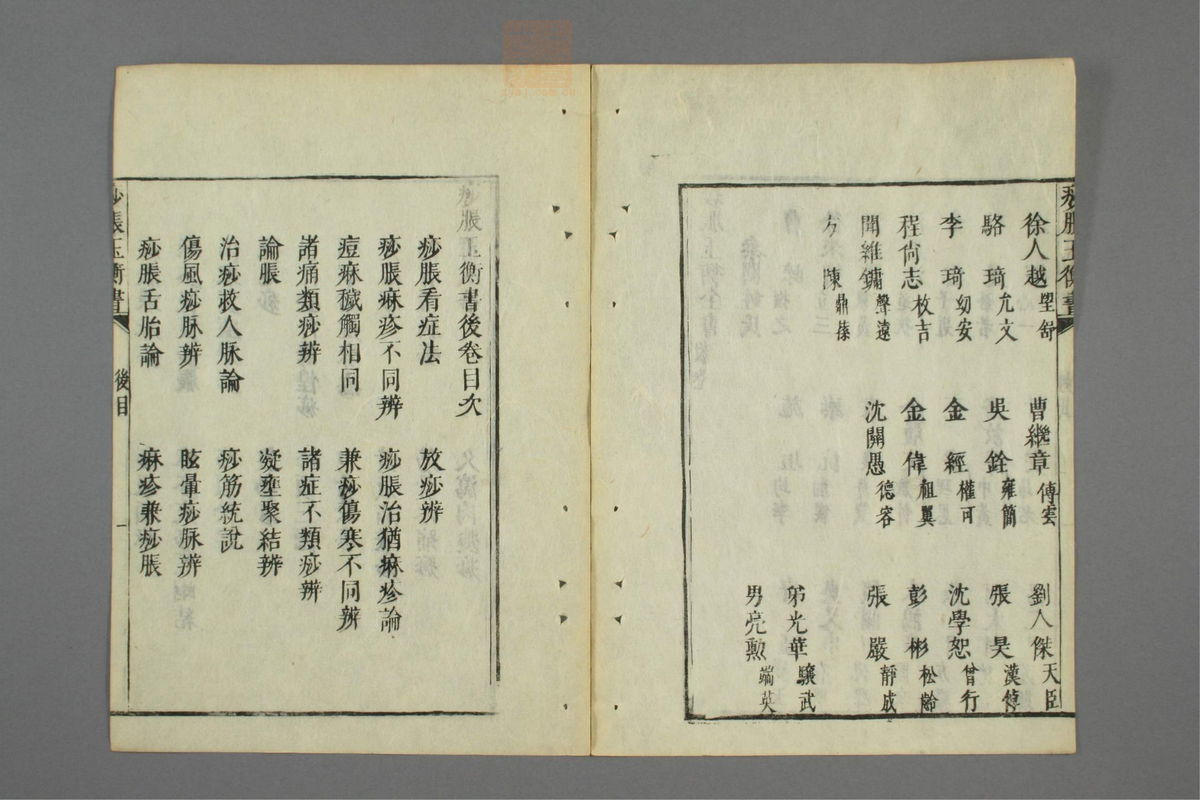 痧脹玉衡書
徐人越 塱舒 曹繼章 傅雲 劉人傑 天臣
駱 琦 允文 吳 銓 雍簡 張 昊 漢倬
李 琦 幼安 金 經 權可 沈學恕 曾行
程尚志 枚吉 金 偉 祖翼 彭 彬 松齡
聞維鏞 聲遠 沈開愚 德容 張 嚴 靜成
方 陳 鼎篠 弟光華 驤武
男亮勲 端英
痧脹玉衡書後卷目次
痧脹看症法 放痧辨
痧脹麻疹不同辨 痧脹治猶麻疹論
痘麻穢觸相同 兼痧傷寒不同辨
諸痛類痧辨 諸症不類痧辨
論脹 凝壅聚結辨
治痧救人脉論 痧筋統說
傷風痧脉辨 眩暈痧脉辨
痧脹舌胎論 麻疹兼痧脹
痧脹玉衡書 後目 一